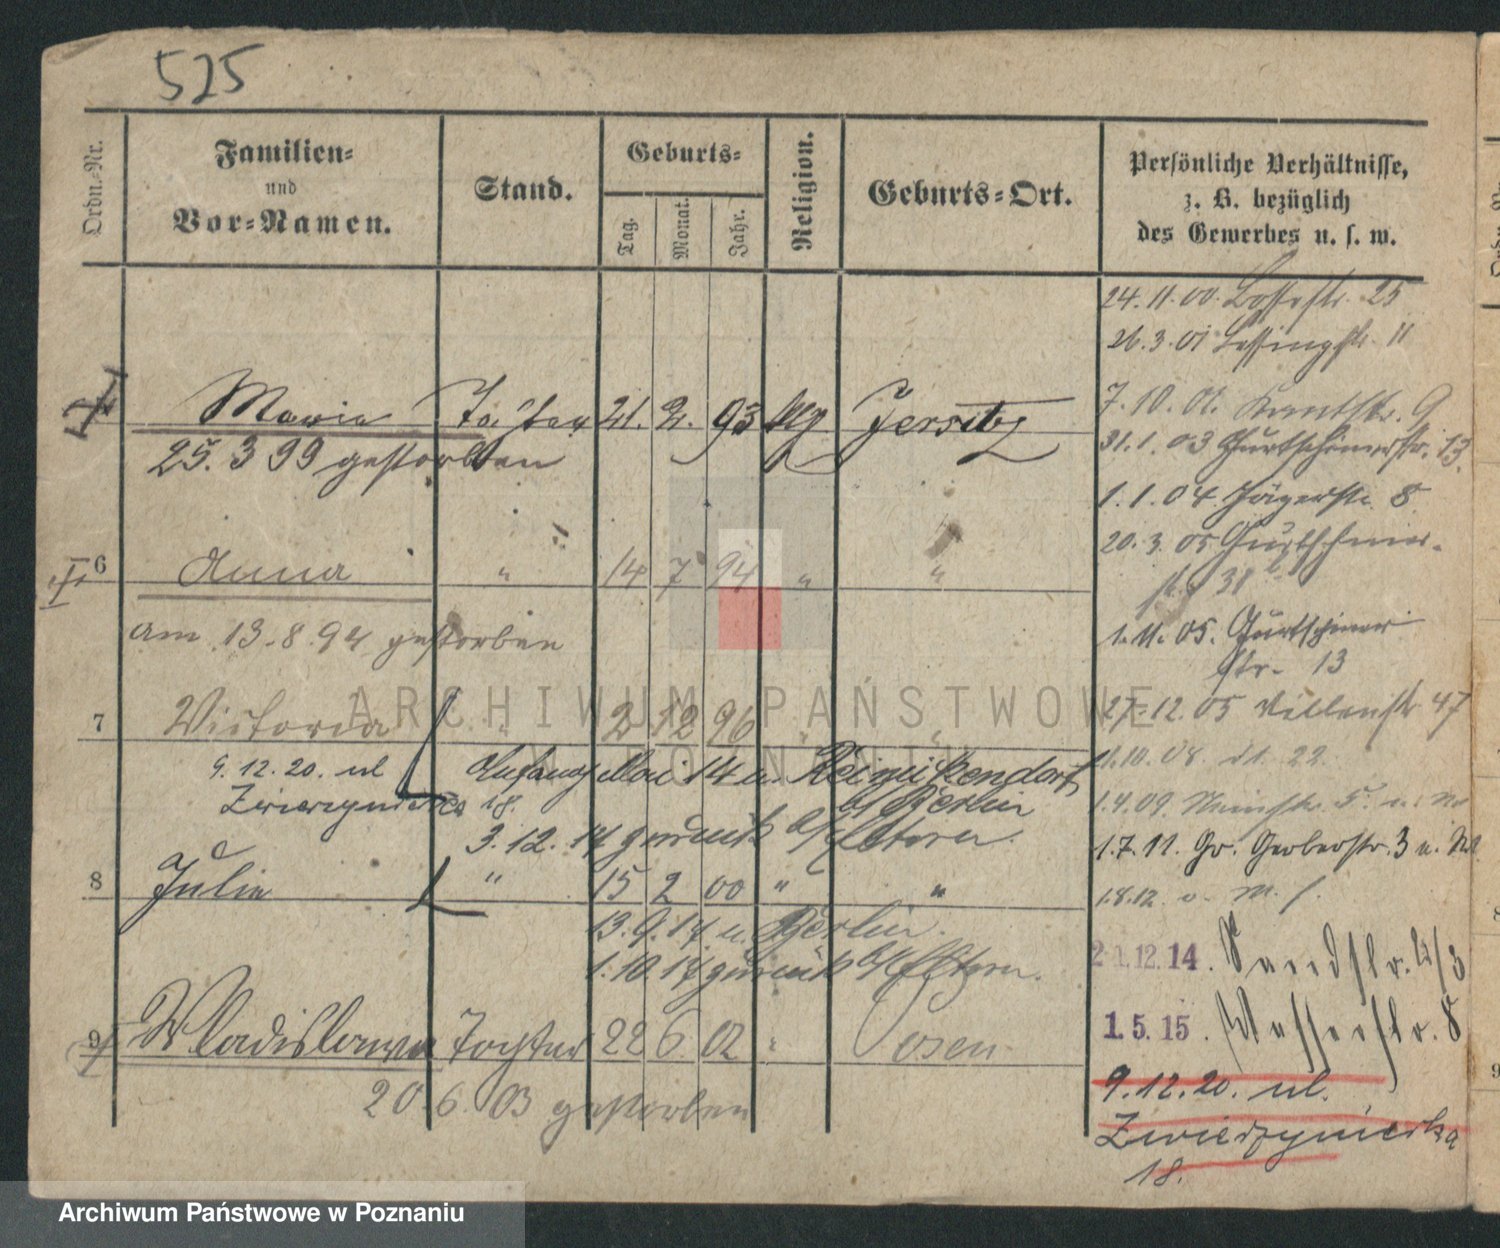 525
Ordn.-Nr.
Familien-
und
Vor-Namen.
Stand.
Geburts-
Tag.
Monat.
Jahr.
Religion.
Geburts-Ort.
Persönliche Verhältnisse,
z. B. bezüglich
des Gewerbes u. s. w.
Maria Tochter 21. 2. 93 Jersitz
25. 3 99 gestorben
6 Anna " 14 7 94 " "
am 13. 8. 94 gestorben
7 Victoria " 2 12 96 " "
9. 12. 20. ul
Zwierzyniecka 18.
Anfang Mai 14 n. Reinickendorf
b/ Berlin
3. 12. 14 zurück b/ Eltern.
8 Julie " 15 2 00 " "
13. 9. 14 n. Berlin.
1. 10. 14 zurück b/ Eltern.
9 Wladislawa Tochter 22 6 02 " Posen
20. 6. 03 gestorben
24. 11. 00. Bossestr. 25
26. 3. 01 Lessingstr. 11
7. 10. 01. Kantstr. 9
31. 1. 03 Gurtschinerstr. 13.
1. 1. 04. Jägerstr. 8
20. 3. 05 Gurtschiner-
str 38
1. 11. 05. Gurtschiner
Str. 13
27. 12. 05 Villenstr 47
1. 10. 08. 22.
1. 4. 09. 5.
1. 7. 11. Gr. Gerberstr. 3
1. 8. 12.
21.12.14. Sandstr. 2/3
1. 5. 15. Wasserstr. 8
9. 12. 20 ul.
Zwierzyniecka
18.
ARCHIWUM PAŃSTWOWE
W POZNANIU
Archiwum Państwowe w Poznaniu